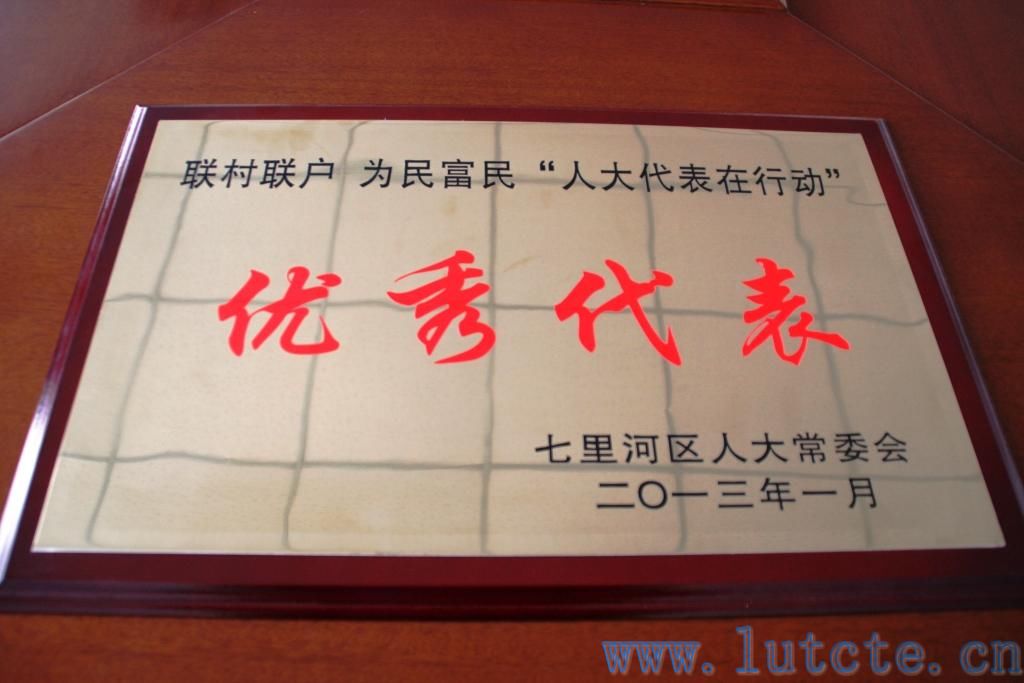 联村联户 为民富民“人大代表在行动”
优秀代表
七里河区人大常委会
二〇一三年一月
www.lutcte.cn